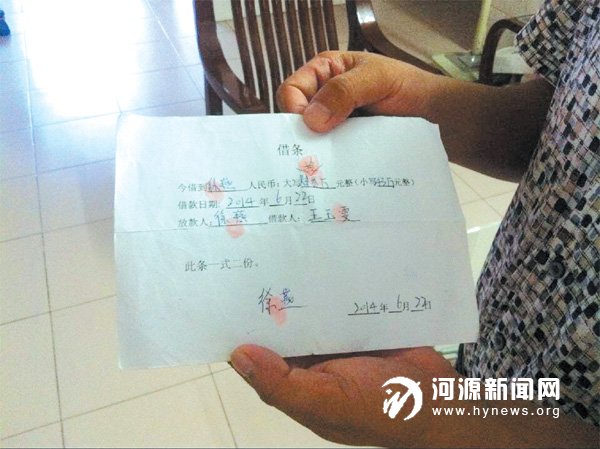 借条
今借到徐 人民币：大写 万 元整（小写 万元整）
借款日期：2014年6月22日
放款人：徐 借款人：王玉雯
此条一式二份。
徐
2014年6月22日
河源新闻网
www.hynews.org